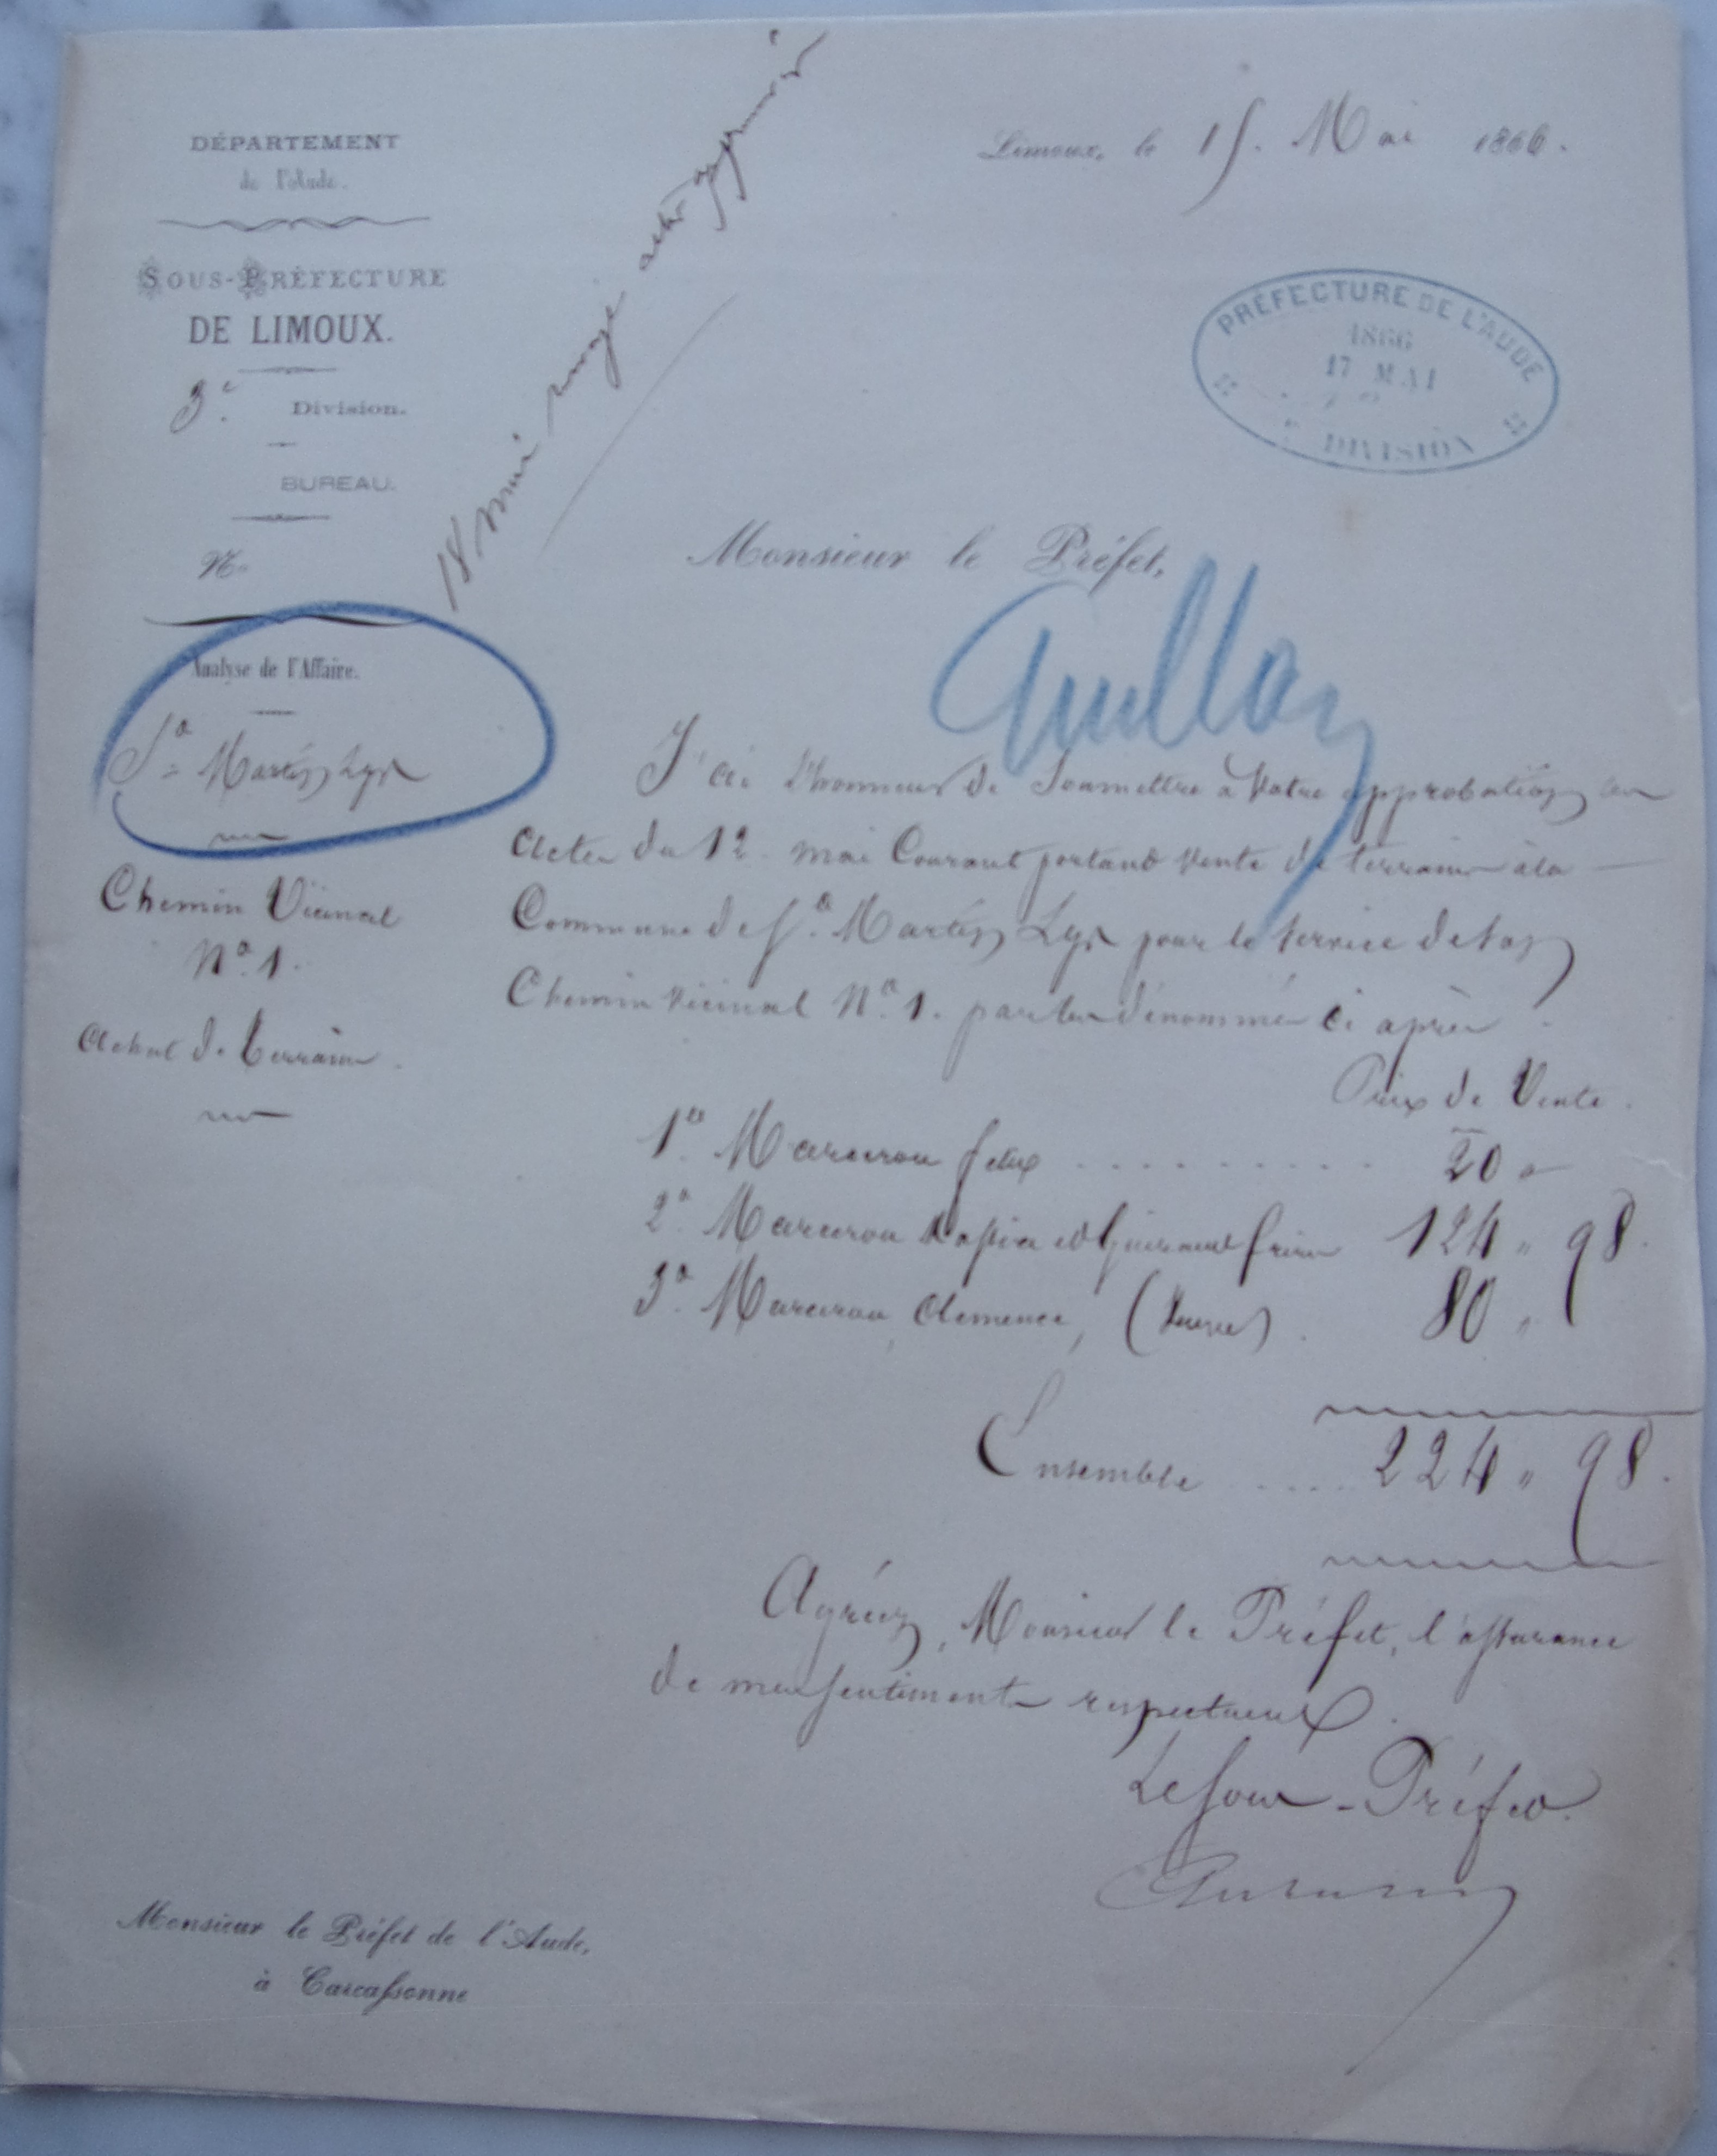 DÉPARTEMENT
de l'Aude.
SOUS-PRÉFECTURE
DE LIMOUX.
3e. Division.
BUREAU.
No
Analyse de l'Affaire.
St Martin Lys
Chemin Vicinal
No. 1.
Achat de terrain.
18 mai renvoyé actes approuvés
Limoux, le 15. Mai 1866.
PRÉFECTURE DE L'AUDE
1866
17 MAI
DIVISION
Monsieur le Préfet,
J'ai l'honneur de Soumettre à Votre approbation les
actes du 12. mai Courant portant Vente de terrains à la
Commune de St. Martin Lys pour le service de son
Chemin vicinal No. 1. par les dénommés ci après.
Prix de Vente.
1o. Marcerou felix .......... 20 "
2o. Marcerou et Guiraud frères 124 " 98.
3o. Marcerou, Clemence, (Veuve). 80 "
Ensemble ..... 224 " 98.
Agréez, Monsieur le Préfet, l'assurance
de mes sentiments respectueux.
Le Sous-Préfet.
Monsieur le Préfet de l'Aude,
à Carcassonne